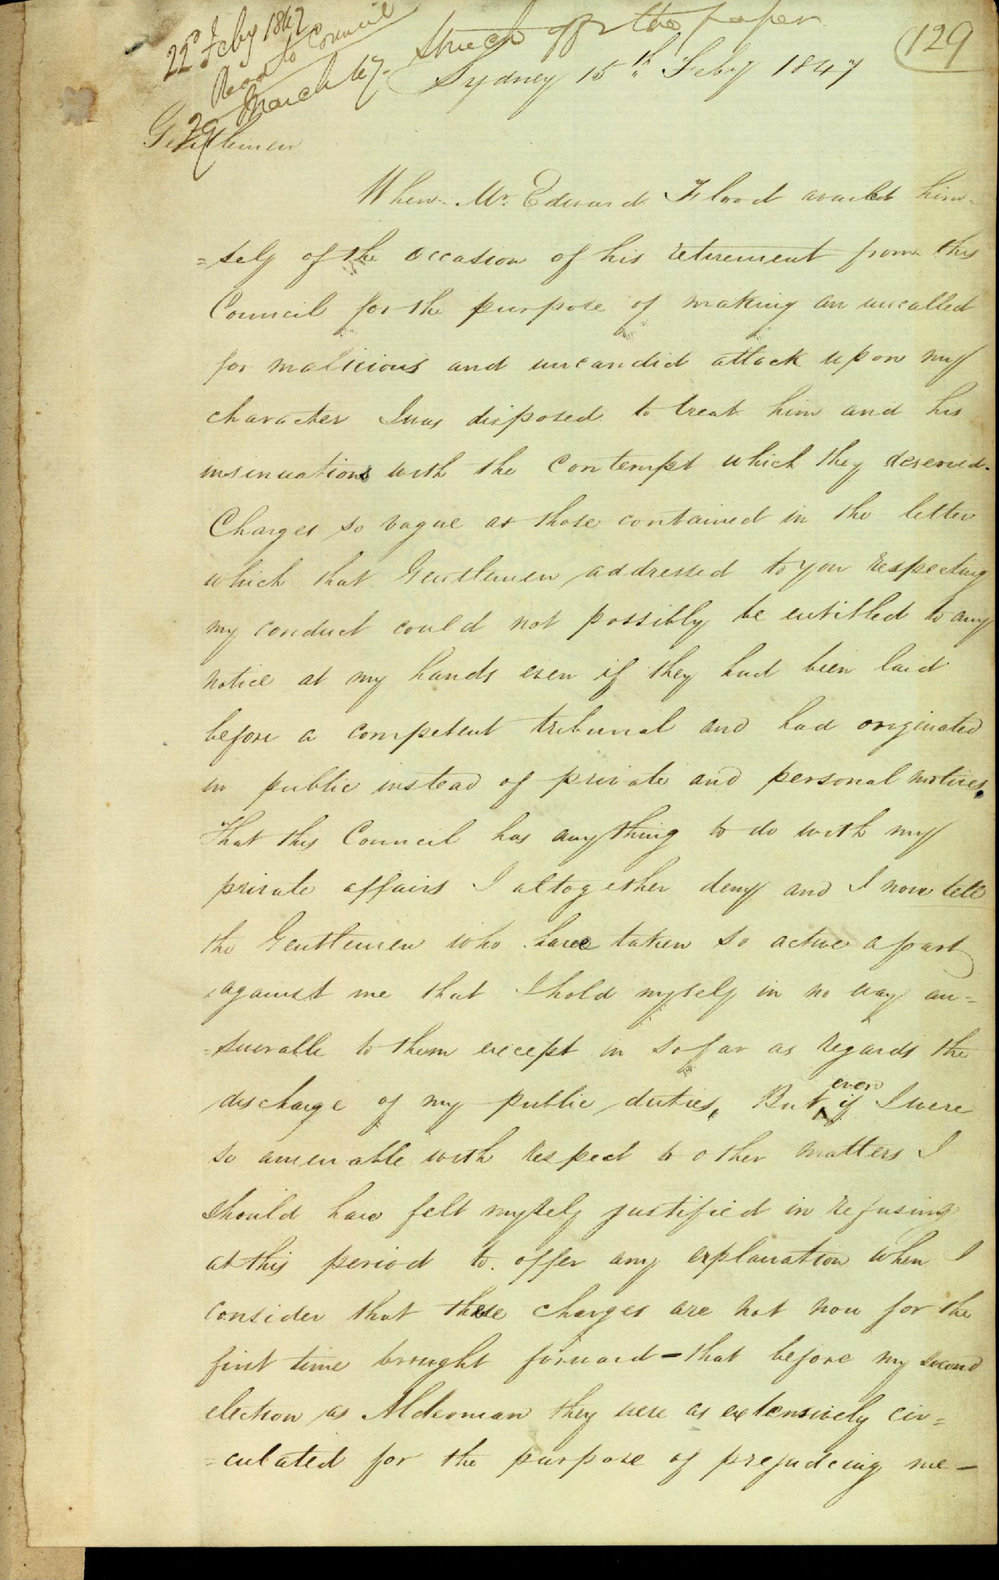 22d Feby 1847
Read to Council
29 March 47.
Struck off the paper
129
Sydney 15th Feby 1847
Gentlemen
When Mr. Edward Flood availed him-
=self of the occasion of his retirement from this
Council for the purpose of making an uncalled
for malicious and uncandid attack upon my
character I was disposed to treat him and his
insinuations with the contempt which they deserved.
Charges so vague as those contained in the letter
which that Gentlemen addressed to you respecting
my conduct could not possibly be entitled to any
notice at my hands even if they had been laid
before a competent tribunal and had originated
in public instead of private and personal motives.
That this Council has anything to do with my
private affairs I altogether deny and I now tell
the Gentlemen who have taken so active a part
against me that I hold myself in no way an=
=swerable to them except in so far as regards the
discharge of my public duties, But even if I were
so amenable with respect to other matters I
should have felt myself justified in refusing
at this period to offer any explanation when I
consider that these charges are not now for the
first time brought forward - that before my second
election as Alderman they were as extensively cir=
=culated for the purpose of prejudicing me -